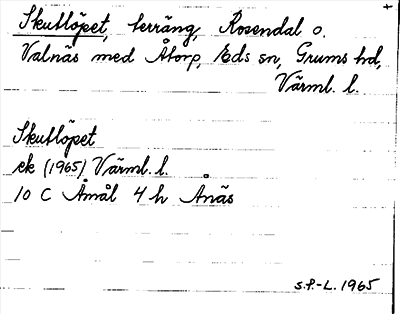 Skutlöpet, terräng, Rosendal o.
Valnäs med Åtorp, Eds sn, Grums hd,
Värml. l.
Skutlöpet
ek (1965) Värml. l.
10 C Åmål 4 h Ånäs
S.P.-L. 1965